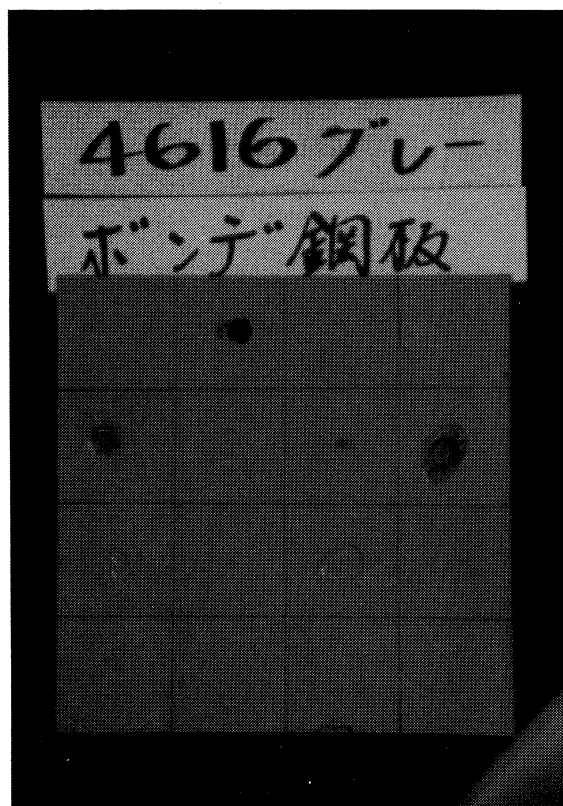 4616グレー
ボンデ鋼板